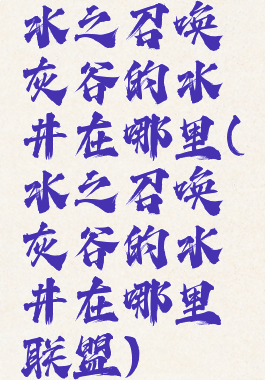 水之召唤
灰谷的水
井在哪里(
水之召唤
灰谷的水
井在哪里
联盟)